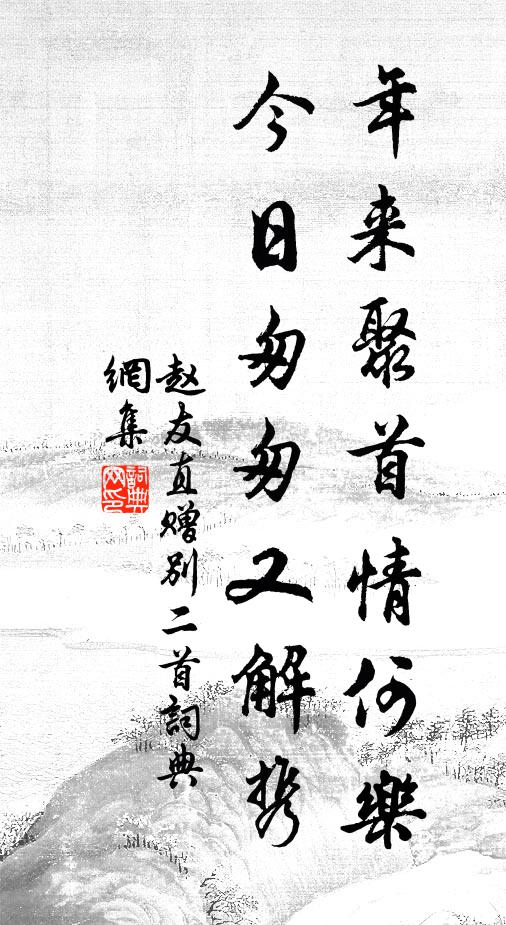 年来聚首情何樂
今日匆匆又解携
赵友直赠别二首詞典
網集
詞典
网印